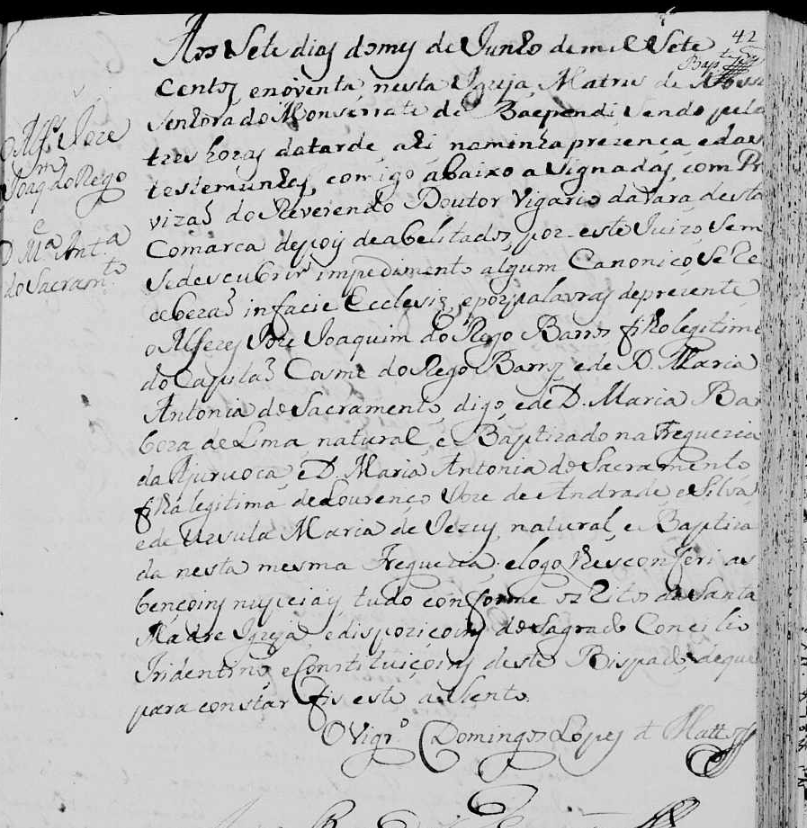 42
Bapt.
Aos Sete dias do mes de Junho de mil Sete
Centos, e noventa nesta Igreja Matris de Nossa
Senhora do Monserrate de Baependi, Sendo pela
tres horas da tarde ahi na minha prezença e das
testemunhas, comigo abaixo aSignadas, com Pr
vizaõ do Reverendo Doutor Vigario da Vara desta
Comarca depois de abelitados, por este Juizo Sem
Se descubrir impedimento algum Canonico, Se Re
ceberaõ in facie Ecclesiæ, e por palavras de prezente
o Alferes Joze Joaquim do Rego Barros filho legitimo
do Capitaõ Cosme do Rego Barros e de D. Maria
Antonia do Sacramento, digo, e de D. Maria Bar
boza de Lima, natural, e Baptizado na Freguezia
da Ajuruoca, e D. Maria Antonia do Sacramento
filha legitima de Lourenço Joze de Andrade e Silva
e de Ursula Maria de Jezus, natural, e Baptiza
da nesta mesma Freguezia, e logo lhes conferi as
bençoins nupciais, tudo conforme os Ritos da Santa
Madre Igreja, e dispoziçoins do Sagrado Concilio
Tridentino, e Constituiçoins deste Bispado, de que
para constar fis este aSsento.
O Vigr.º Domingos Lopes de Mattos
o Alf.s Joze
Joaq.m do Rego
e
D. M.a Ant.a
do Sacram.to